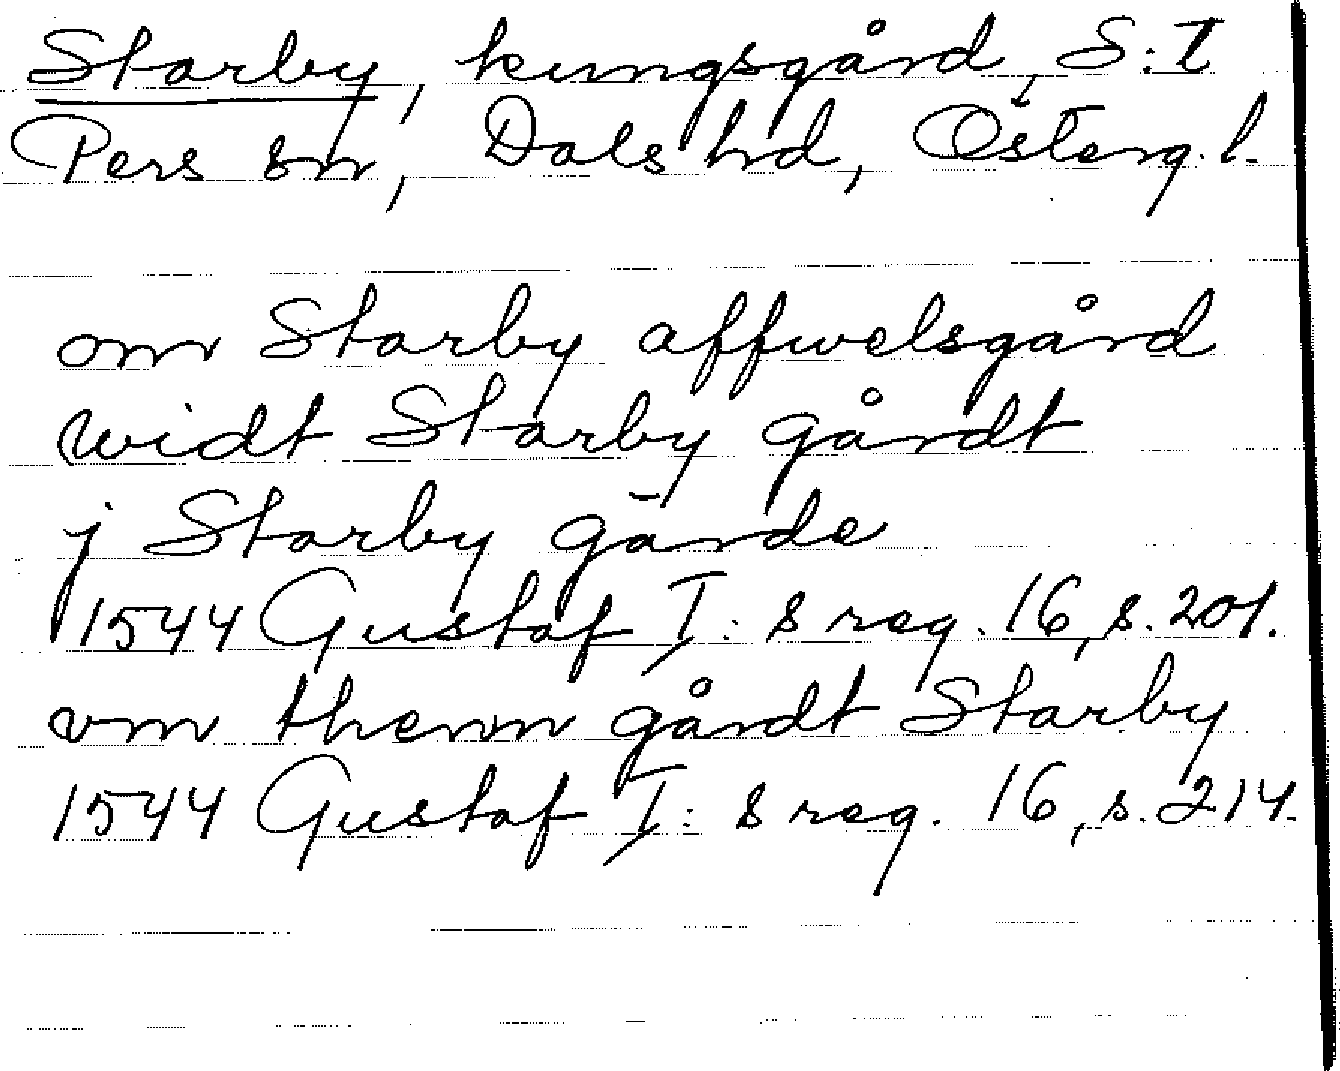 Starby, kungsgård, S:t
Pers sn, Dals hd, Österg.l.
om Starby affwelsgård
widt Starby gårdt
j Starby gärde
1544 Gustaf I:s reg. 16, s. 201.
vm thenn gårdt Starby
1544 Gustaf I:s reg. 16, s. 214.